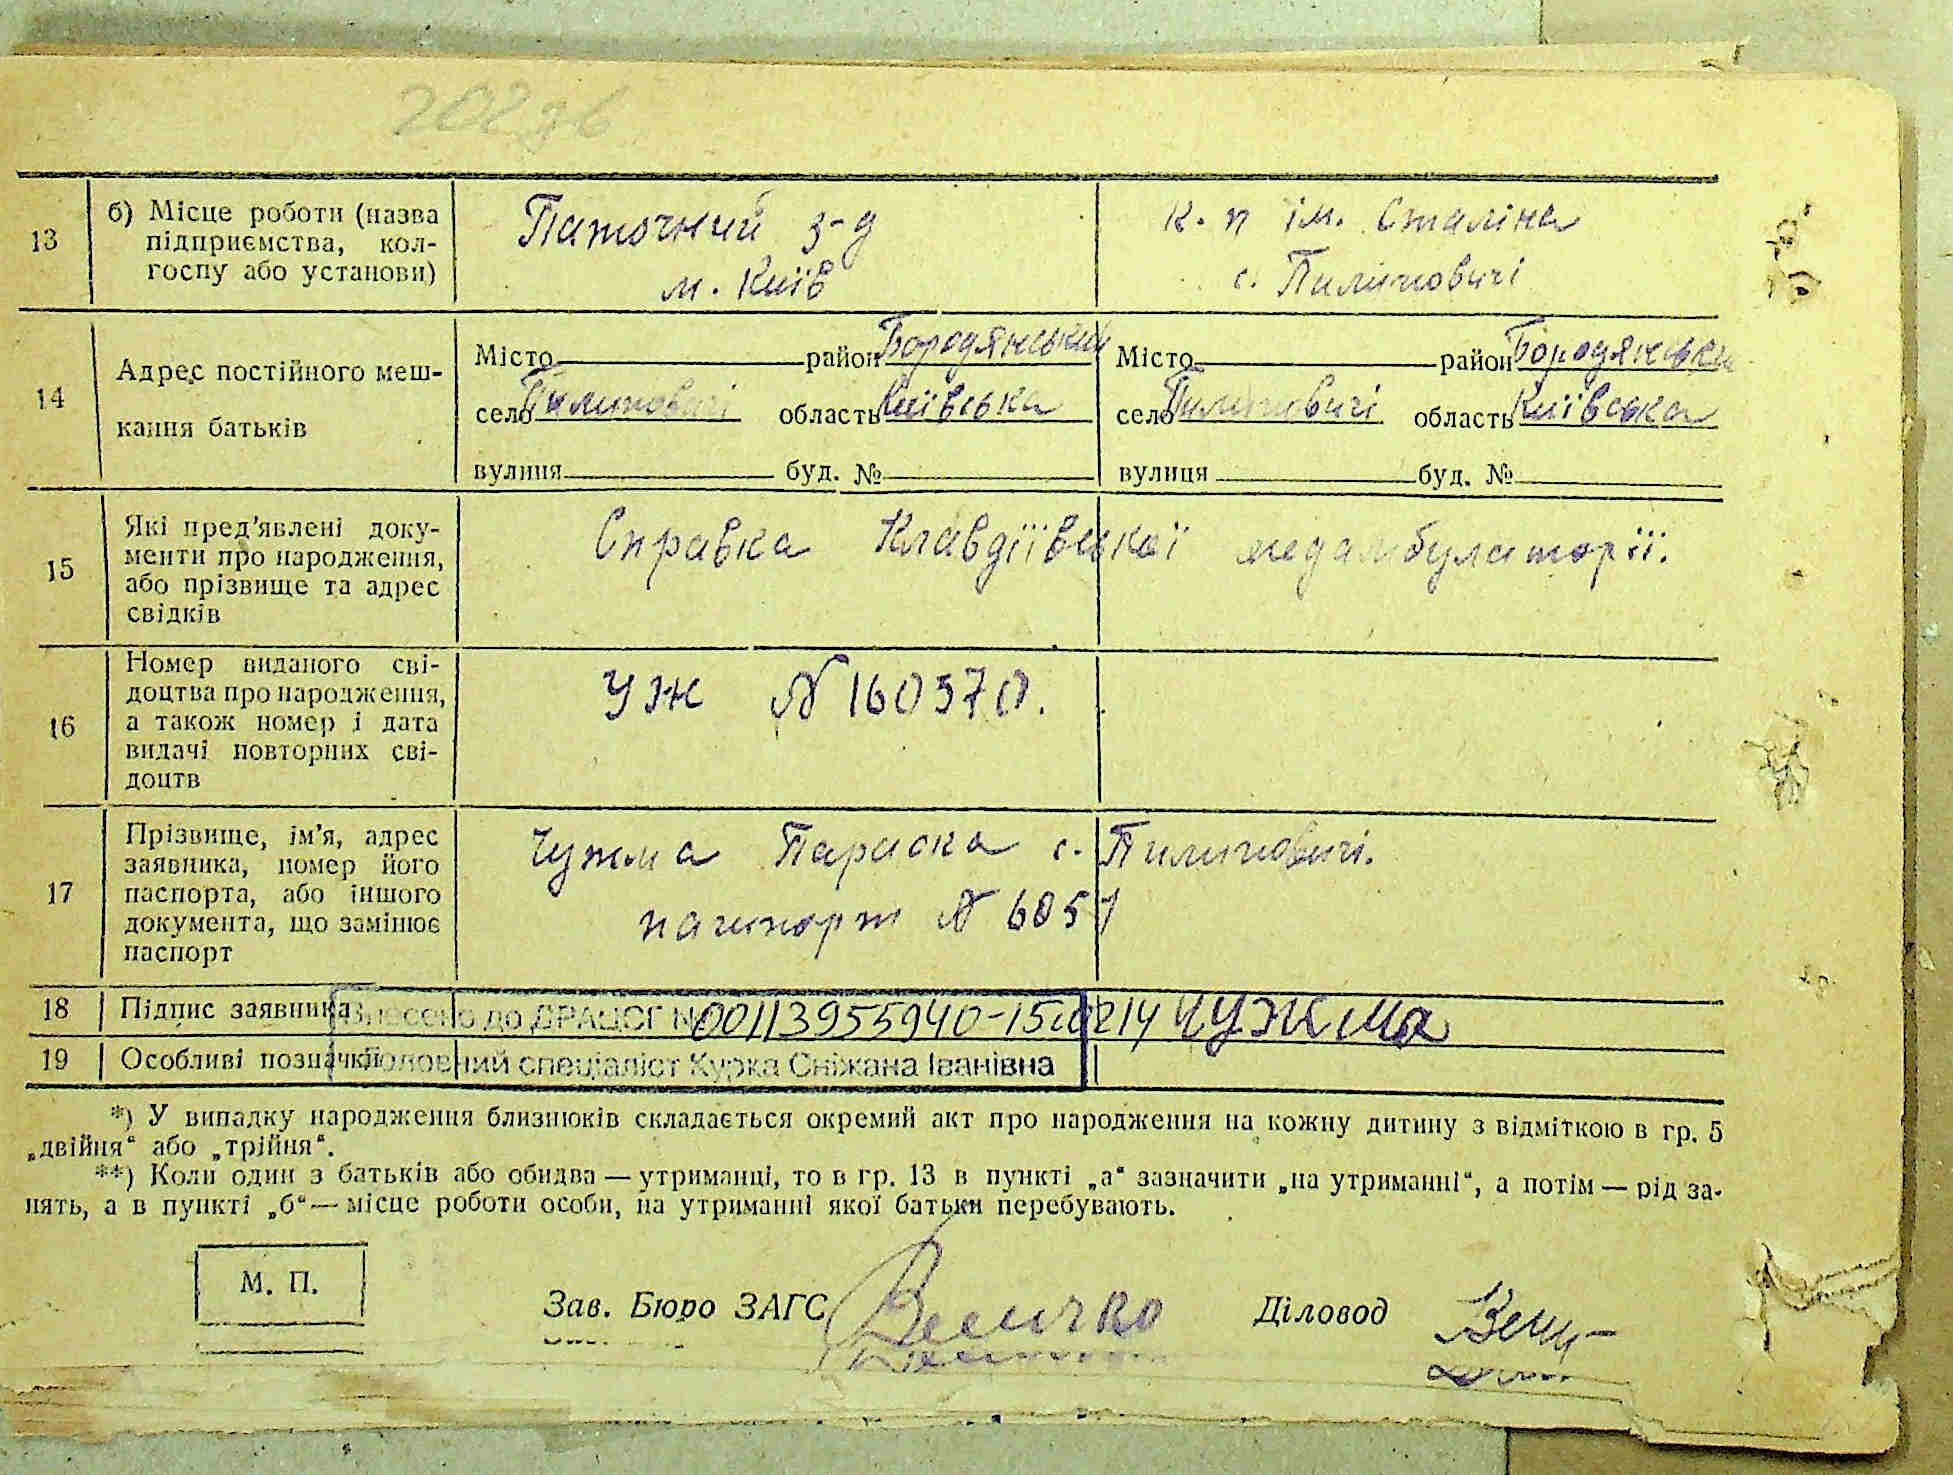 13 б) Місце роботи (назва підприємства, колгоспу або установи)
Паточний з-д
м. Київ
к. п ім. Сталіна
с. Пилиповичі
14 Адрес постійного мешкання батьків
Місто район Бородянський
село Пилиповичі область Київська
вулиця буд. №
Місто район Бородянський
село Пилиповичі область Київська
вулиця буд. №
15 Які пред'явлені документи про народження, або прізвище та адрес свідків
Справка Клавдіївської медамбулаторії.
16 Номер виданого свідоцтва про народження, а також номер і дата видачі повторних свідоцтв
УЖ № 160570.
17 Прізвище, ім'я, адрес заявника, номер його паспорта, або іншого документа, що замінює паспорт
Чужма Параска с. Пилиповичі.
пашпорт № 6051
18 Підпис заявника
Внесено до ДРАЦСГ № 00113955940-15.0214 Чужма
19 Особливі позначки
Головний спеціаліст Курка Сніжана Іванівна
*) У випадку народження близнюків складається окремий акт про народження на кожну дитину з відміткою в гр. 5
„двійня“ або „трійня“.
**) Коли один з батьків або обидва — утриманці, то в гр. 13 в пункті „а“ зазначити „на утриманні“, а потім — рід за-
нять, а в пункті „б“ — місце роботи особи, на утриманні якої батьки перебувають.
М. П.
Зав. Бюро ЗАГС Величко Діловод